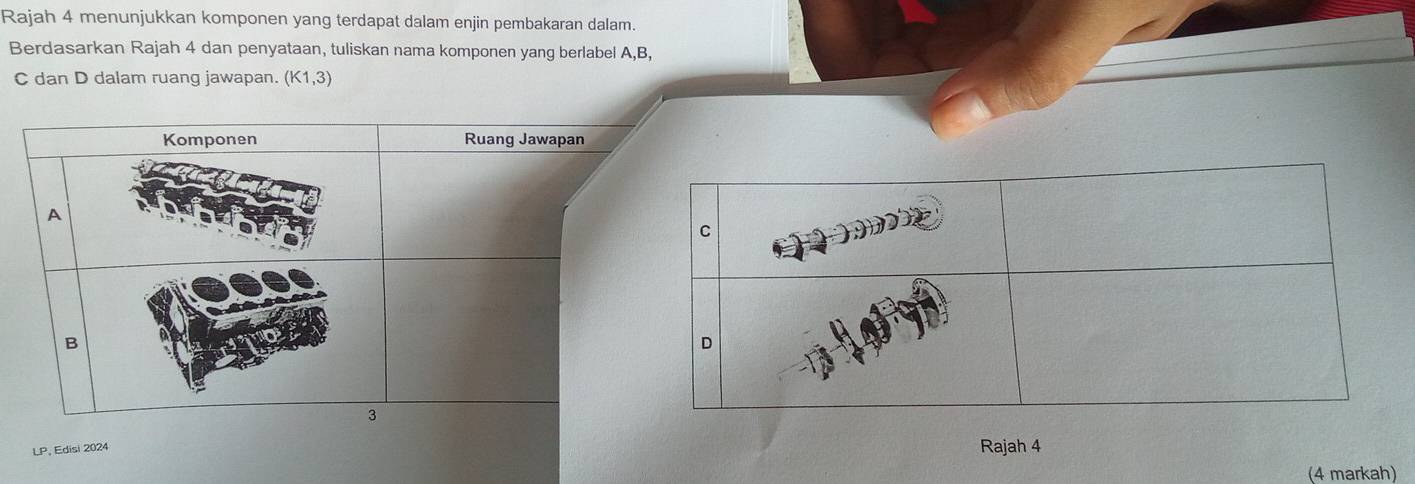 Rajah 4 menunjukkan komponen yang terdapat dalam enjin pembakaran dalam.
Berdasarkan Rajah 4 dan penyataan, tuliskan nama komponen yang berlabel A,B,
C dan D dalam ruang jawapan. (K1,3)
Komponen Ruang Jawapan
A
B
3
LP, Edisi 2024
C
D
Rajah 4
(4 markah)